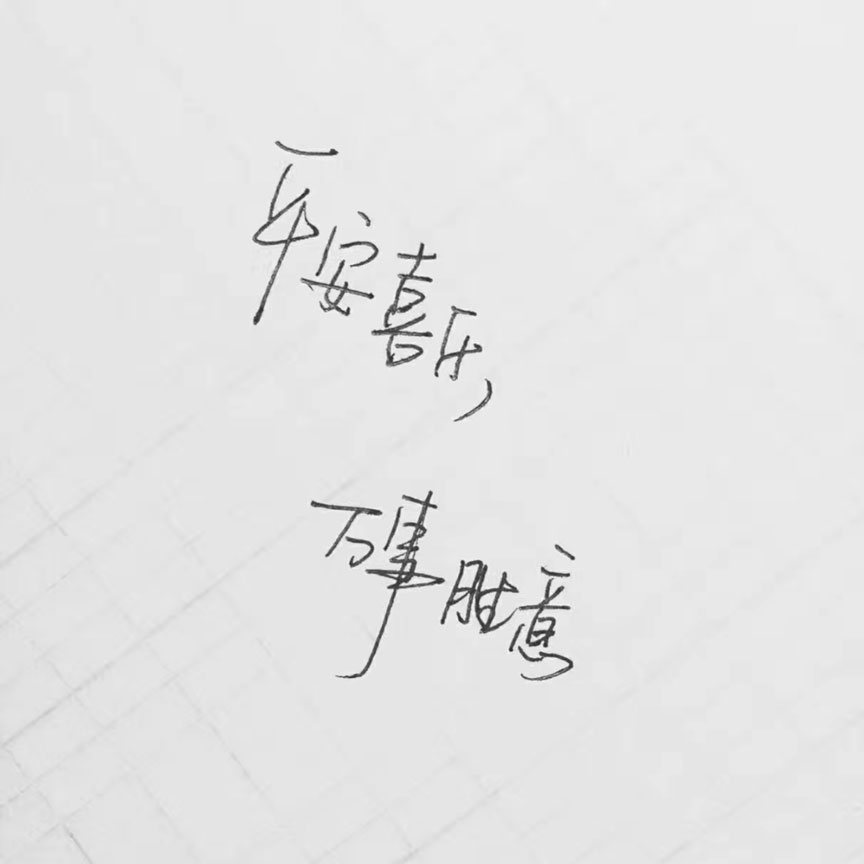 平安喜乐,
万事胜意